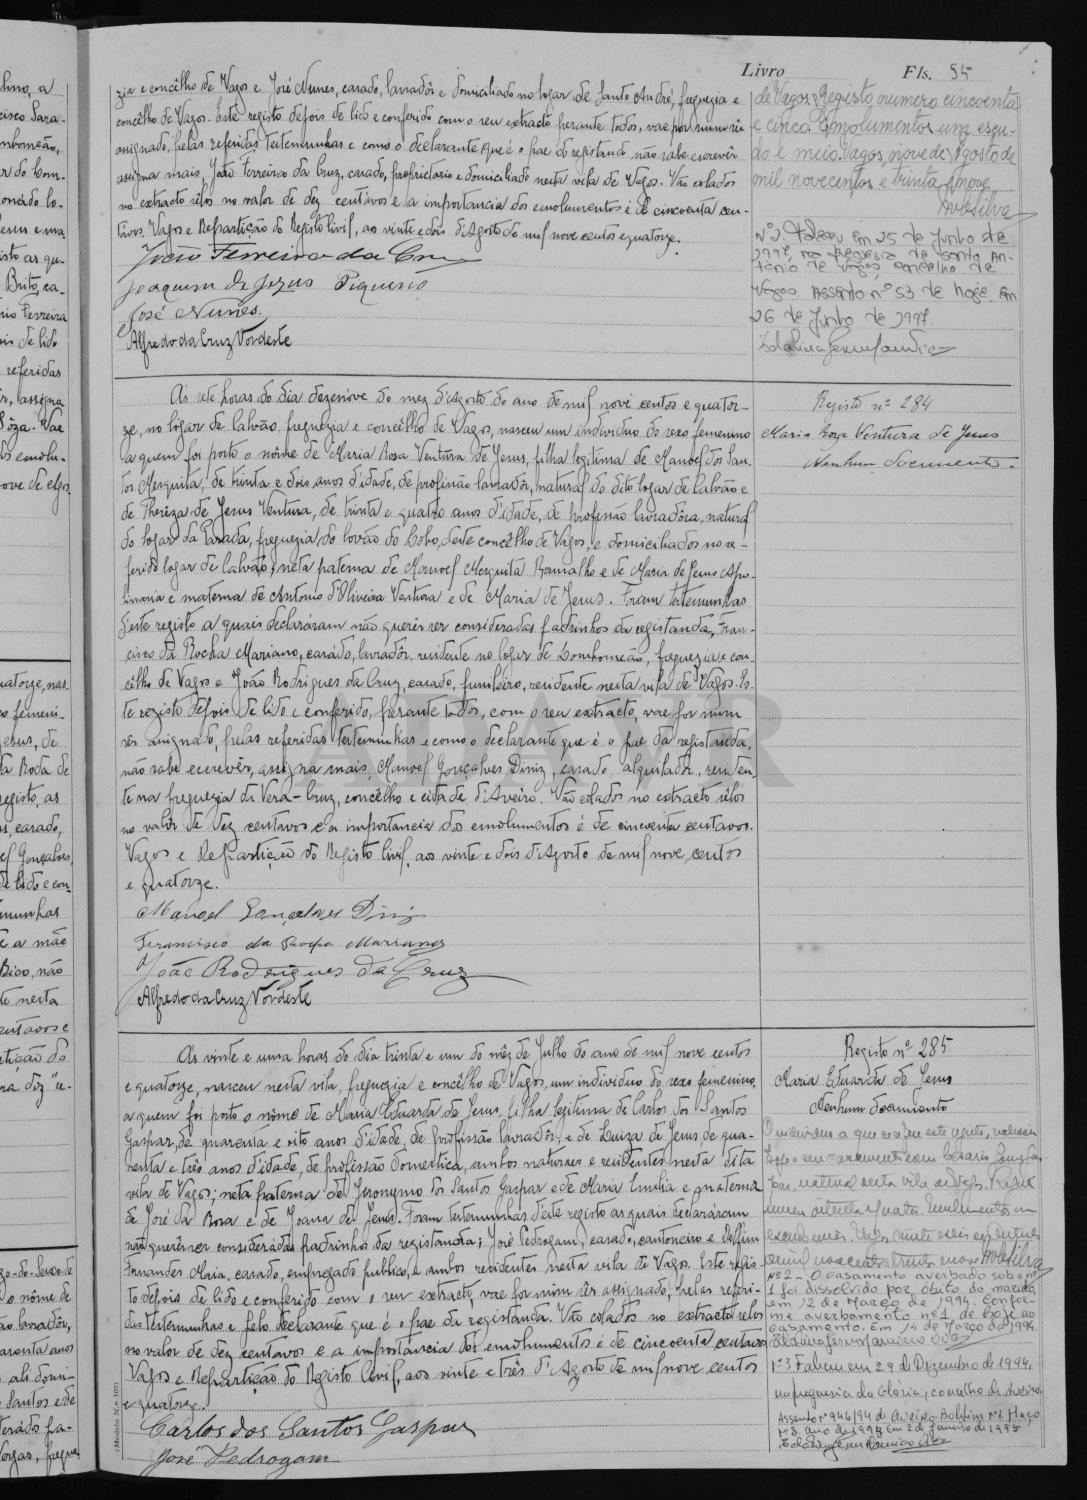 Livro Fls. 95
zia e concêlho de Vagos e José Nunes, casado, lavradôr e domiciliado no logar de Santo André, freguezia e
concêlho de Vagos. Este registo depois de lido e conferido com o seu extracto perante todos, vae por mim ser
assignado, pelas referidas testemunhas e como o declarante que é o pae do registando não sabe escrevêr
assigna mais, João Ferreira da Cruz, casado, proprietario e domiciliado nesta vila de Vagos. Vão colados
no extracto sêlos no valor de dez centavos e a importancia dos emolumentos é de cincoenta cen-
tavos. Vagos e Repartição do Registo Civil, aos vinte e dois d'Agosto de mil nove centos e quatorze.
João Ferreira da Cruz
Joaquim de Jezus Piqueiro
José Nunes.
Alfredo da Cruz Nordeste
de Vagos. Registo numero cincoenta
e cinco. Emolumentos um escu-
do e meio. Vagos, nove de Agosto de
mil novecentos e trinta e nove.
Nº 2. Faleceu em 25 de Junho de
1997, na freguesia de Santo An-
tónio de Vagos, concelho de
Vagos. Assento nº 53 de hoje. Em
26 de Junho de 1997.
Ás sete horas do dia dezenove do mez d'Agosto do ano de mil nove centos e quator-
ze, no logar de Calvão, freguezia e concêlho de Vagos, nasceu um individuo do sexo femenino
a quem foi posto o nôme de Maria Rosa Ventura de Jesus, filha legitima de Manoel dos San-
tos Mesquita, de trinta e dois anos d'idade, de profissão lavradôr, natural do dito logar de Calvão e
de Thereza de Jesus Ventura, de trinta e quatro anos d'idade, de profissão lavradôra, natural
do logar da Parada, freguezia do Covão do Lobo, deste concêlho de Vagos, e domiciliados no re-
ferido logar de Calvão; neta paterna de Manoel Mesquita Ramalho e de Maria de Jesus Apo-
linaria e materna de Antonio d'Oliveira Ventura e de Maria de Jesus. Foram testemunhas
d'este registo as quais declararam não querêr ser consideradas padrinhos da registanda, Fran-
cisco da Rocha Mariano, casádo, lavradôr, residente no logar de Lombomeão, freguezia e con-
cêlho de Vagos e João Rodrigues da Cruz, casado, funileiro, residente nesta vila de Vagos. Es-
te registo depois de lido e conferido, perante todos, com o seu extracto, vae por mim
sêr assignado, pelas referidas testemunhas e como o declarante que é o pae da registanda,
não sabe escrevêr, assigna mais, Manoel Gonçalves Diniz, casado, alquilador, residen-
te na freguezia da Vera-Cruz, concêlho e cidade d'Aveiro. Vão colados no extracto sêlos
no valôr de dez centavos e a importancia dos emolumentos é de cincoenta centavos.
Vagos e Repartição do Registo Civil, aos vinte e dois d'Agosto de mil nove centos
e quatorze.
Manoel Gonçalves Diniz
Francisco da Rocha Mariano
João Rodrigues da Cruz
Alfredo da Cruz Nordeste
Registo nº 284
Maria Rosa Ventura de Jesus
Nenhum documento.
ATAR
Ás vinte e uma horas do dia trinta e um do mêz de Julho do ano de mil nove centos
e quatorze, nasceu nesta vila, freguezia e concêlho de Vagos, um individuo do sexo femenino,
a quem foi posto o nôme de Maria Eduarda de Jesus, filha legitima de Carlos dos Santos
Gaspar, de quarenta e oito anos d'idade, de profissão lavradôr, e de Luiza de Jesus, de qua-
renta e três anos d'idade, de profissão domestica, ambos naturaes e residentes nesta dita
vila de Vagos; neta paterna de Jeronymo dos Santos Gaspar e de Maria Emilia e materna
de José da Rosa e de Joana de Jesus. Foram testemunhas d'este registo as quais declararam
não querêr ser considerádas padrinhos da registanda; José Pedrogam, casado, cantoneiro e Delfim
Fernandes Maia, casado, empregado publico, e ambos residentes nesta vila de Vagos. Este regis-
to depois de lido e conferido, com o seu extracto, vae por mim sêr assignado, pelas referi-
das testemunhas e pelo declarante que é o pae da registanda. Vão colados no extracto sêlos
no valor de dez centavos e a importancia dos emolumentos é de cincoenta centavos.
Vagos e Repartição do Registo Civil, aos vinte e três d'Agosto de mil nove centos
e quatorze.
Carlos dos Santos Gaspar
José Pedrogam
Registo nº 285
Maria Eduarda de Jesus
Nenhum documento
O individuo a que respeita este registo, realisou
hoje o seu casamento com Cesario
natural desta vila de Vagos. Registo
numero
Nº 2 - O casamento averbado sob o nº
1 foi dissolvido por óbito do marido,
em 12 de Março de 1994. Confor-
me averbamento nº 1 de hoje ao
casamento. Em 14 de Março de 1994
Nº 3 Faleceu em 29 de Dezembro de 1994,
na freguesia da Glória, concelho de Aveiro.
Assento nº 946/94 de Aveiro. Boletim nº 1. Maço
nº 8, ano de 1995. Em 2 de Janeiro de 1995